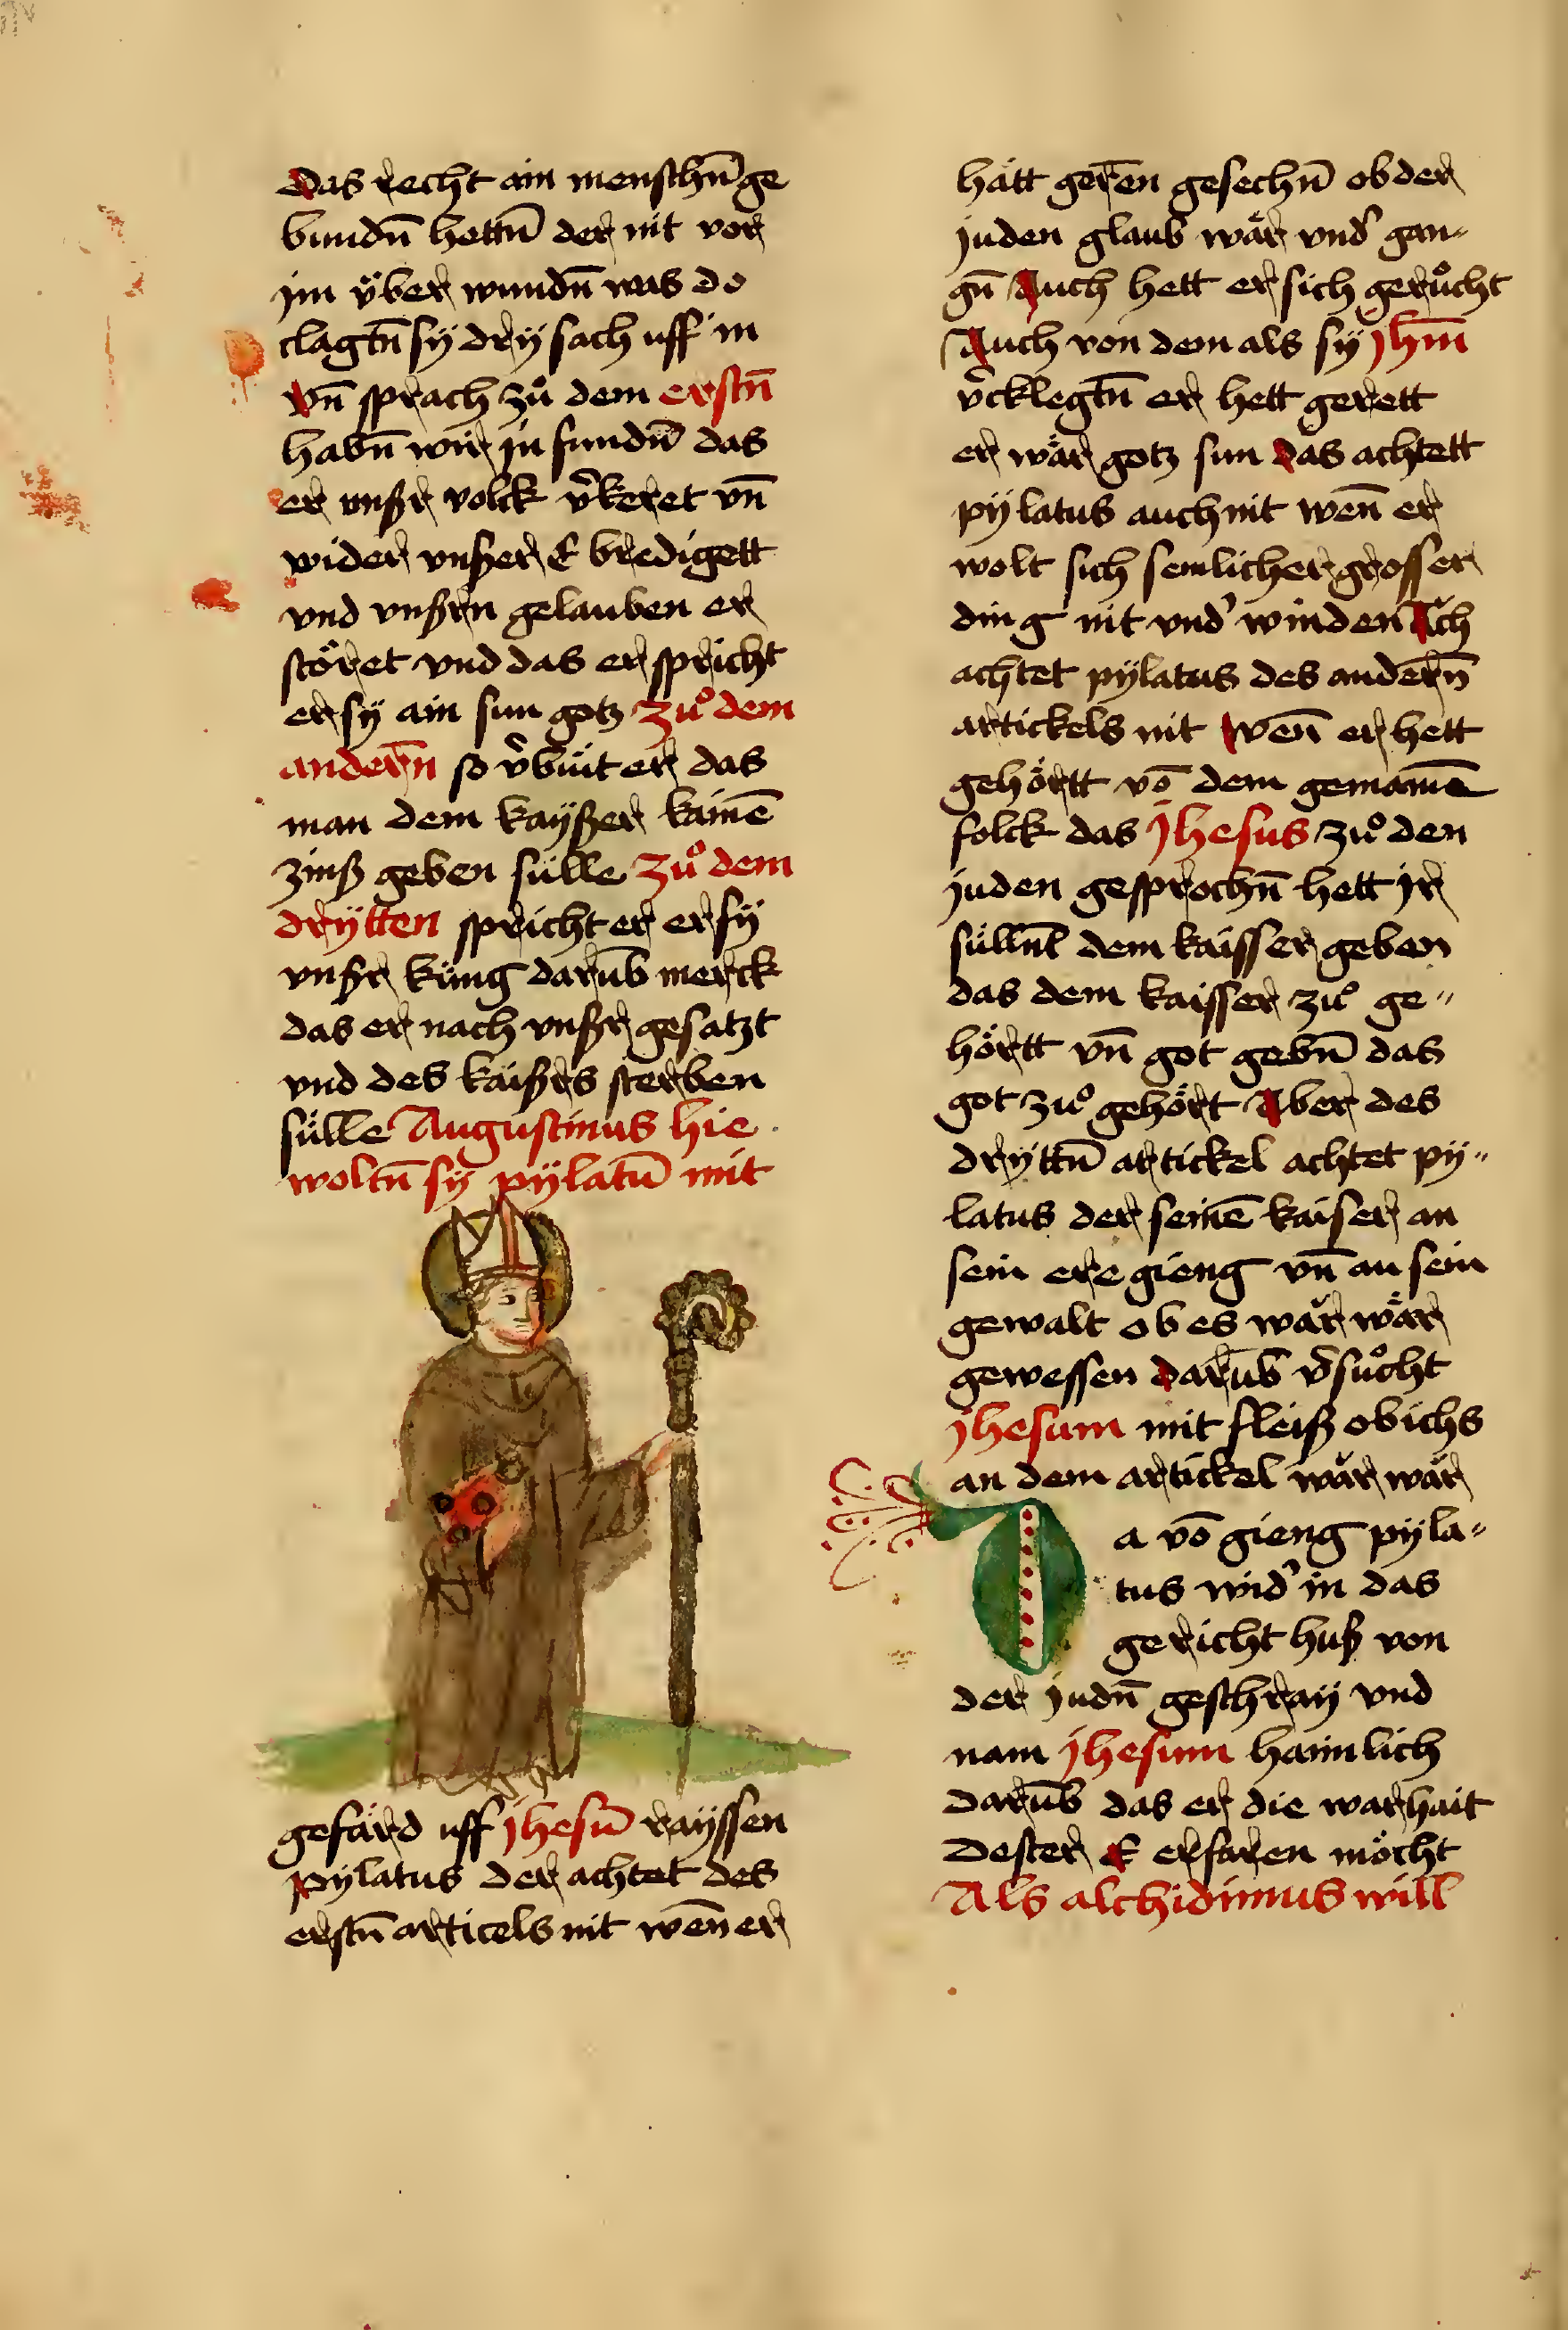 das recht ain menschn̄ ge
bundn̄ hettn̄ der nit vor
jm v̈ber wundn̄ was do
clagtn̄ sÿ drÿ sach uff in
vn̄ sprach zů dem erstn̄
habn̄ wir jn fundn̄ das
er vnßr volck v̉keret vn̄
wider vnßer E bredigett
vnd vnßrn gelauben er
störet vnd das er spricht
er sÿ ain sun gotz zů dem
andern̄ so v̉büit er das
man dem kaÿßer kainē
zinß geben sülle zů dem
drÿtten spricht er er sÿ
vnßr küng darūb merck
das er nach vnßr gesatzt
vnd des kaißrs sterben
sülle Augustinus hie
woltn̄ sÿ pÿlatū mit
gefärd uff jhesū raÿssen
pÿlatus der achtet des
erstn̄ articels nit wen̄ er
hätt geren̄ gesechn̄ ob der
juden glaub wär vnd̉ gan-
gn̄ Auch hett er sich gerůcht
Auch von dem als sÿ jhm̄
v̉cklegtn̄ er hett gerett
er wär gotz sun das achtett
pÿlatus auch nit wen̄ er
wolt sich semlicher grosser
ding nit vnd̉ winden Ach
achtet pÿlatus des andern̄
artickels nit wen̄ er hett
gehörtt vō dem gemainē
folck das jhesus zů den
juden gesprochn̄ hett jr
süllnt dem kaisser geben
das dem kaisser zů ge-
hörtt vn̄ got gebn̄ das
got zů gehört Aber des
drÿttn̄ artickel achtet pÿ-
latus der seinē kaiser an
sein ere gieng vn̄ an sein
gewalt ob es wär wär
gewessen darūb v̉sůcht
jhesum mit fleiß ob ichs
an dem artickel wär wär
Da vō gieng pÿla-
tus wid̉ in das
gericht huß von
der judn̄ geschraÿ vnd
nam jhesum haimlich
darūb das er die warhait
dester E erfaren möcht
Als alchidimus will